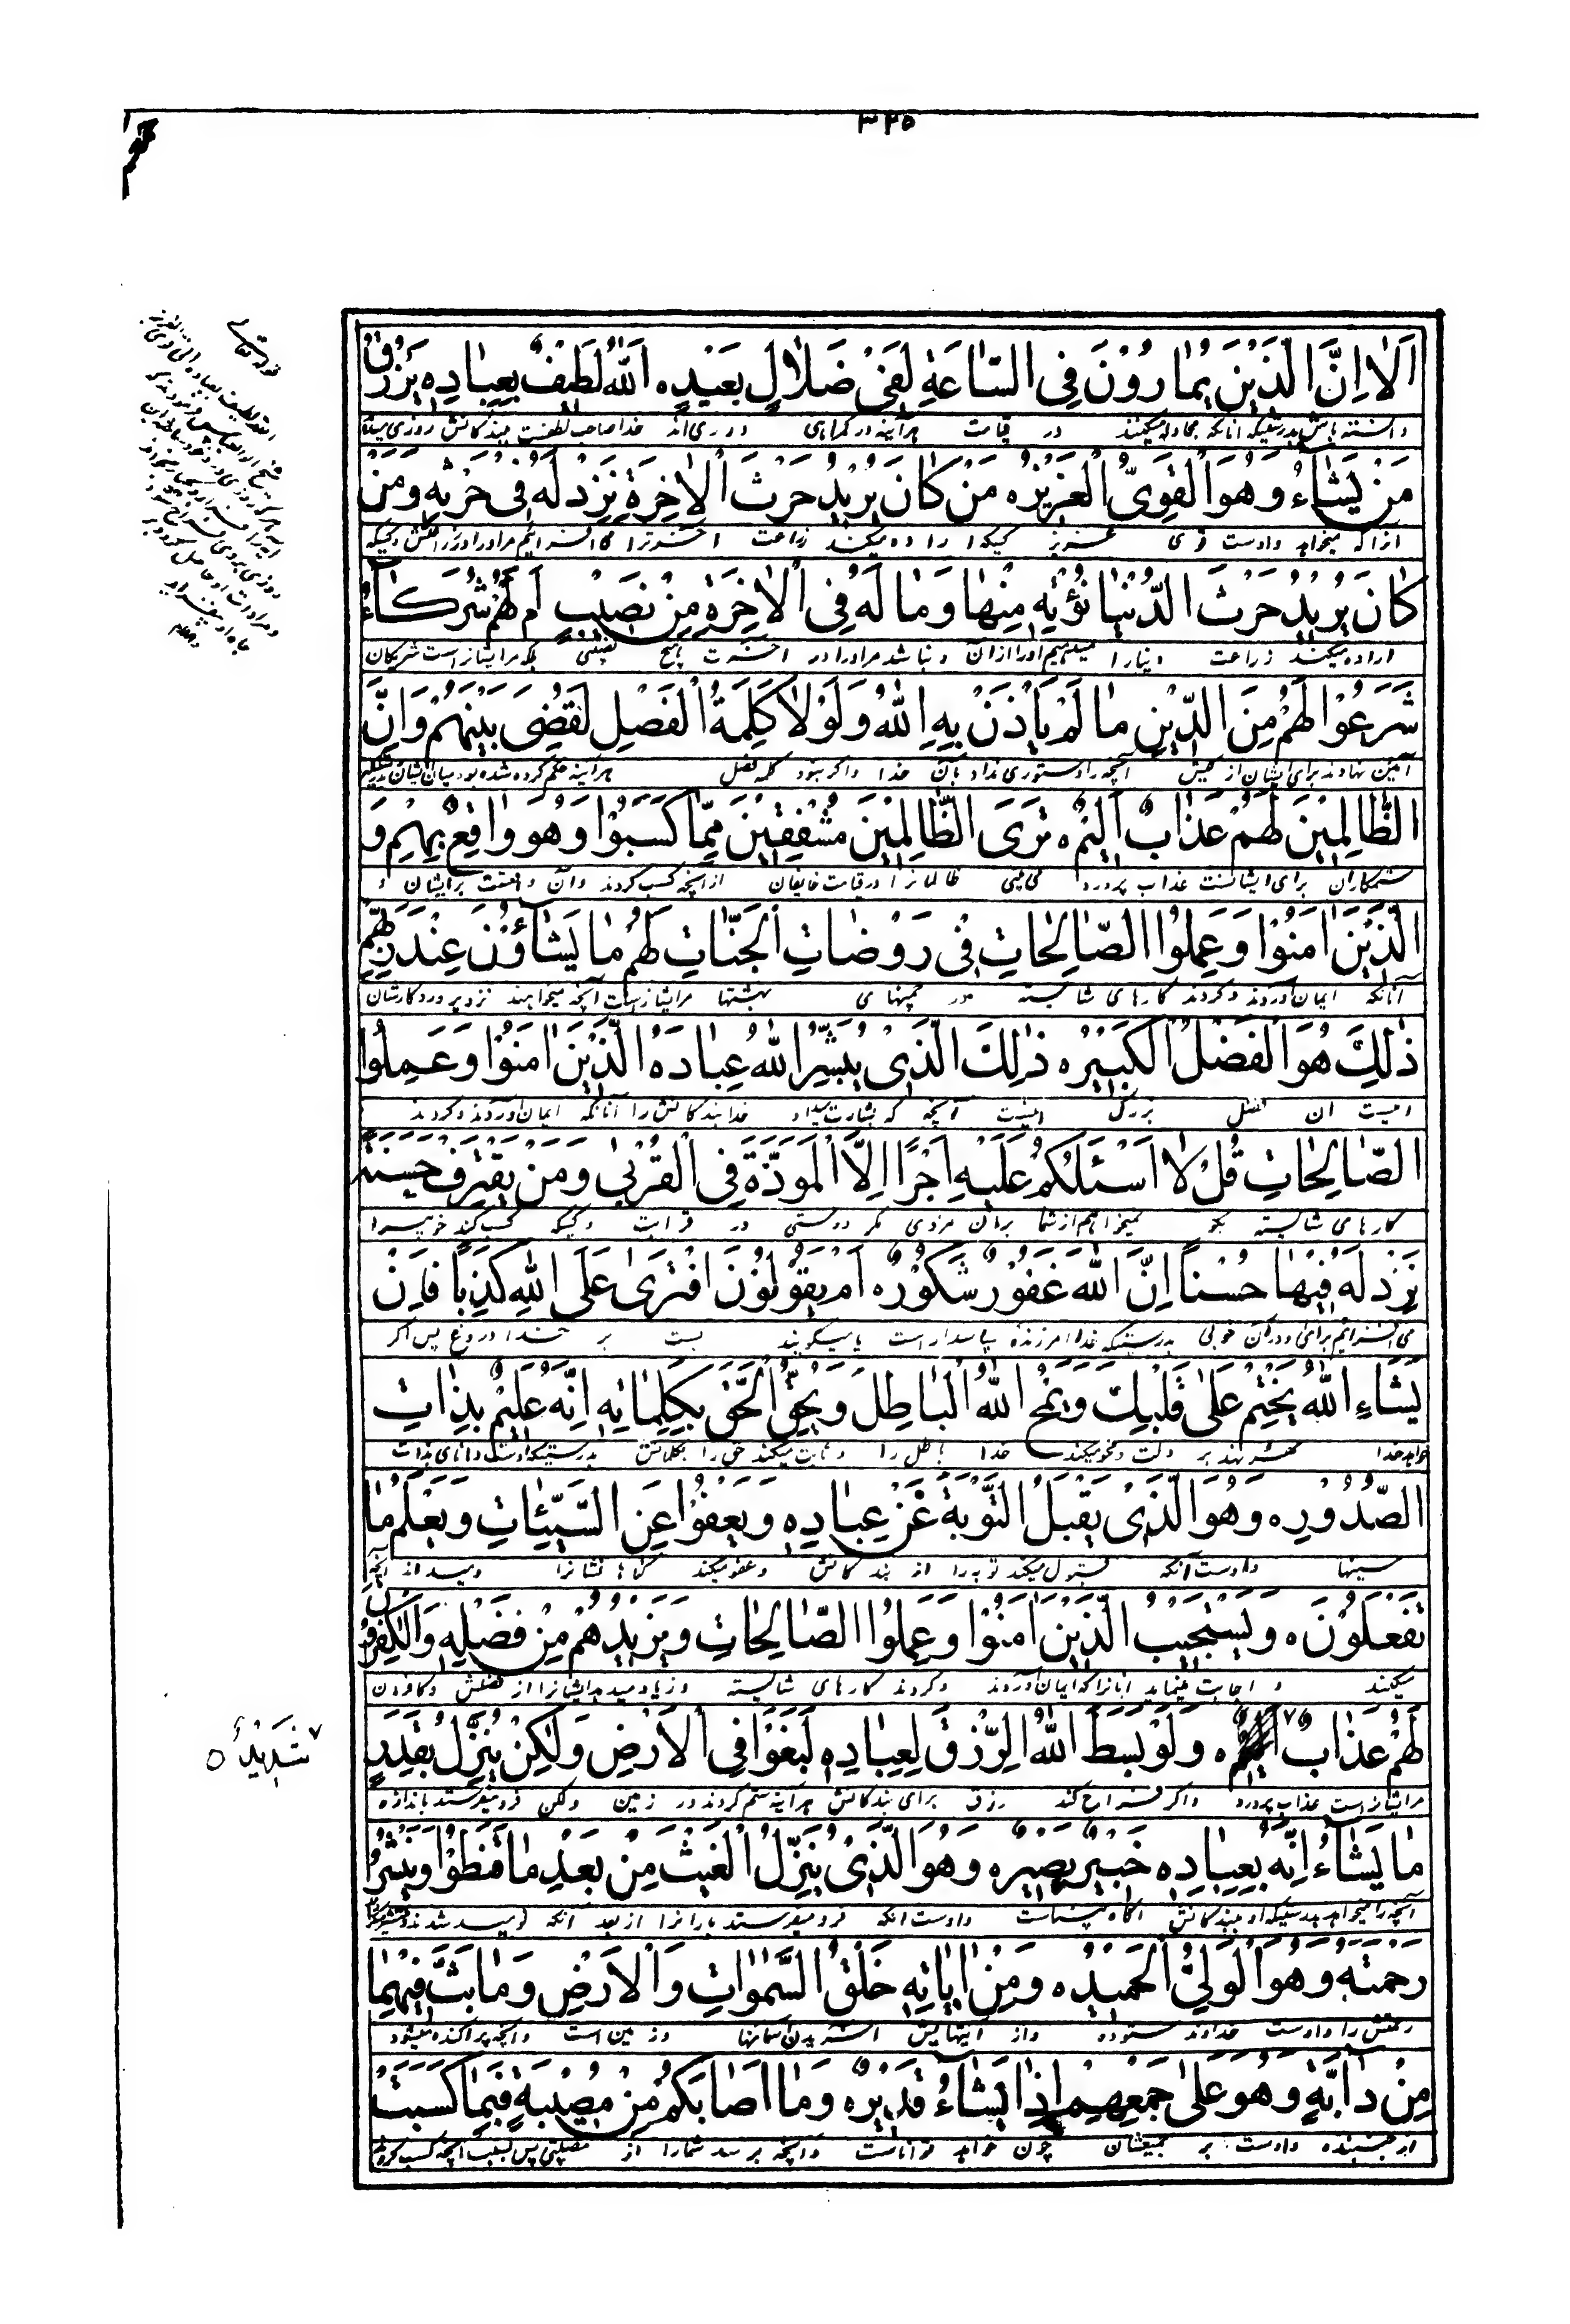 ۳۲۵
اَلٰا اِنَّ الَّذینَ یُمٰارُوْنَ فِی السّٰاعَةِ لَفِیْ ضَلٰالٍ بَعیْدٍه اَللّٰهُ لَطیفٌ بِعِبٰادِهٖ یَرْزُقُ
دانسته باش بدرستیکه آنانکه مجادله میکنند در قیامت هرآینه در گمراهی دوری‌اند خدا صاحب لطفست ببندگانش روزی میدهد
مَنْ یَشٰاءُ وَهُوَ الْقَوِیُّ الْعَزیْزُه مَنْ كٰانَ یُریْدُ حَرْثَ الْاٰخِرَةِ نَزِدْ لَهُ فِی حَرْثِهٖ وَمَنْ
آنرا که میخواهد واوست قوی عزیز کسیکه اراده میکند زراعت آخرت را می‌افزائیم مر او را در زراعتش و کسیکه
كٰانَ یُریْدُ حَرْثَ الدُّنْیٰا نُؤْتِهٖ مِنْهٰا وَمٰا لَهُ فِی الْاٰخِرَةِ مِنْ نَصیْبٍ اَمْ لَهُمْ شُرَكٰآءُ
اراده میکند زراعت دنیا را میدهیم او را از آن و نباشد مر او را در آخرت هیچ نصیبی بلکه مر ایشانراست شریکان
شَرَعُوْا لَهُمْ مِنَ الدِّیْنِ مٰا لَمْ یَاْذَنْ بِهِ اللّٰهُ وَلَوْلٰا كَلِمَةُ الْفَصْلِ لَقُضِیَ بَیْنَهُمْ وَاِنَّ
آئین نهادند برای ایشان از کیش آنچه را دستوری نداد بآن خدا و اگر نبود کلمه فصل هرآینه حکم کرده شده بود میان ایشان بدرستیکه
الظّٰالِمیْنَ لَهُمْ عَذٰابٌ اَلیْمٌه تَرَی الظّٰالِمیْنَ مُشْفِقیْنَ مِمّٰا كَسَبُوْا وَهُوَ وٰاقِعٌ بِهِمْ وَ
ستمکاران برای ایشانست عذاب پردرد می‌بینی ظالمانرا در قیامت خایفان از آنچه کسب کردند و آن واقعست بر ایشان و
الَّذیْنَ اٰمَنُوْا وَعَمِلُوا الصّٰالِحٰاتِ فِی رَوْضٰاتِ الْجَنّٰاتِ لَهُمْ مٰا یَشٰآؤُنَ عِنْدَ رَبِّهِمْ
آنانکه ایمان آوردند و کردند کارهای شایسته در چمنهای بهشتها مر ایشانراست آنچه میخواهند نزد پروردگارشان
ذٰلِكَ هُوَ الْفَضْلُ الْكَبیْرُه ذٰلِكَ الَّذِی یُبَشِّرُ اللّٰهُ عِبٰادَهُ الَّذیْنَ اٰمَنُوْا وَعَمِلُوا
اینست آن فضل بزرگ اینست آنچه که بشارت میداد خدا بندگانش را آنانکه ایمان آوردند و کردند
الصّٰالِحٰاتِ قُلْ لٰا اَسْئَلُكُمْ عَلَیْهِ اَجْرًا اِلَّا الْمَوَدَّةَ فِی الْقُرْبیٰ وَمَنْ یَقْتَرِفْ حَسَنَةً
کارهای شایسته بگو نمیخواهم از شما بر آن مزدی مگر دوستی در قرابت و کسیکه کسب کند خوبی را
نَزِدْ لَهُ فیْهٰا حُسْنًا اِنَّ اللّٰهَ غَفُوْرٌ شَكُوْرٌه اَمْ یَقُوْلُوْنَ افْتَریٰ عَلَی اللّٰهِ كَذِبًا فَاِنْ
می‌افزائیم برای او در آن خوبی بدرستیکه خدا آمرزنده پاسدار است یا میگویند بست بر خدا دروغ پس اگر
یَشَاءِ اللّٰهُ یَخْتِمْ عَلیٰ قَلْبِكَ وَیَمْحُ اللّٰهُ الْبٰاطِلَ وَیُحِقُّ الْحَقَّ بِكَلِمٰاتِهٖ اِنَّهُ عَلیْمٌ بِذٰاتِ
خواهد خدا مهر نهد بر دلت و محو میکند خدا باطل را و ثابت میکند حق را بکلماتش بدرستیکه اوست دانای بذات
الصُّدُوْرِه وَهُوَ الَّذِی یَقْبَلُ التَّوْبَةَ عَنْ عِبٰادِهٖ وَیَعْفُوْا عَنِ السَّیِّئٰاتِ وَیَعْلَمُ مٰا
سینها و اوست آنکه قبول میکند توبه را از بندگانش و عفو میکند گناهانشانرا و میداند آنچه
تَفْعَلُوْنَه وَیَسْتَجیْبُ الَّذیْنَ اٰمَنُوْا وَعَمِلُوا الصّٰالِحٰاتِ وَیَزیْدُهُمْ مِنْ فَضْلِهٖ وَالْكٰفِرُوْنَ
میکنند و اجابت مینماید آنانرا که ایمان آوردند و کردند کارهای شایسته و زیاد میدهد ایشانرا از فضلش و کافران
لَهُمْ عَذٰابٌ ۷ ه وَلَوْ بَسَطَ اللّٰهُ الرِّزْقَ لِعِبٰادِهٖ لَبَغَوْا فِی الْاَرْضِ وَلٰكِنْ یُنَزِّلُ بِقَدَرٍ
۷ شَدیْدٌ ه
مر ایشانراست عذاب پردرد و اگر فراخ کند رزق برای بندگانش هرآینه ستم کردند در زمین ولکن فرو میفرستد باندازه
مٰا یَشٰاءُ اِنَّهُ بِعِبٰادِهٖ خَبیْرٌ بَصیْرٌه وَهُوَ الَّذِیْ یُنَزِّلُ الْغَیْثَ مِنْ بَعْدِ مٰا قَنَطُوْا وَیَنْشُرُ
آنچه را میخواهد بدرستیکه او ببندگانش آگاه بیناست و اوست آنکه فرو میفرستد بارانرا از بعد آنکه نومید شدند
رَحْمَتَهُ وَهُوَ الْوَلِیُّ الْحَمیْدُه وَمِنْ اٰیٰاتِهٖ خَلْقُ السَّمٰوٰاتِ وَالْاَرْضِ وَمٰا بَثَّ فیْهِمٰا
رحمتش را و اوست خداوند ستوده و از آیتهایش آفریدن آسمانها و زمین است و آنچه پراکنده میشود
مِنْ دٰابَّةٍ وَهُوَ عَلیٰ جَمْعِهِمْ اِذٰا یَشٰآءُ قَدیْرٌه وَمٰا اَصٰابَكُمْ مِنْ مُصیْبَةٍ فَبِمٰا كَسَبَتْ
از جنبنده و اوست بر جمعشان چون خواهد تواناست و آنچه برسد شما را از مصیبتی پس بسبب آنچه کسب کردند